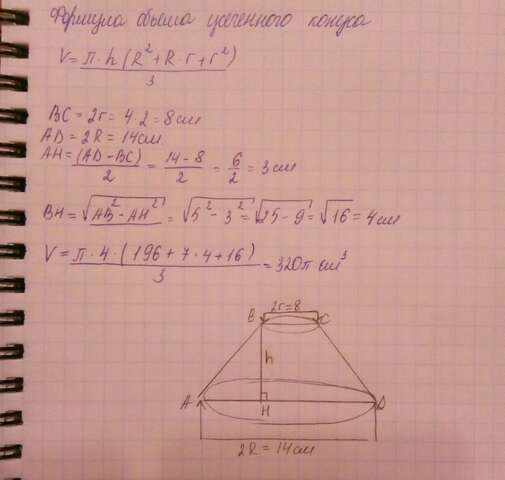 Формула объма усеченного конуса
V = π·h(R²+R·r+r²)
3
BC = 2r = 4·2 = 8см
AD = 2R = 14см
AH = (AD-BC)/2 = 14-8/2 = 6/2 = 3см
BH = √AB²-AH² = √5²-3² = √25-9 = √16 = 4см
V = π·4·(196+7·4+16)/3 = 320π см³
2r=8
B C
h
A H D
2R = 14см